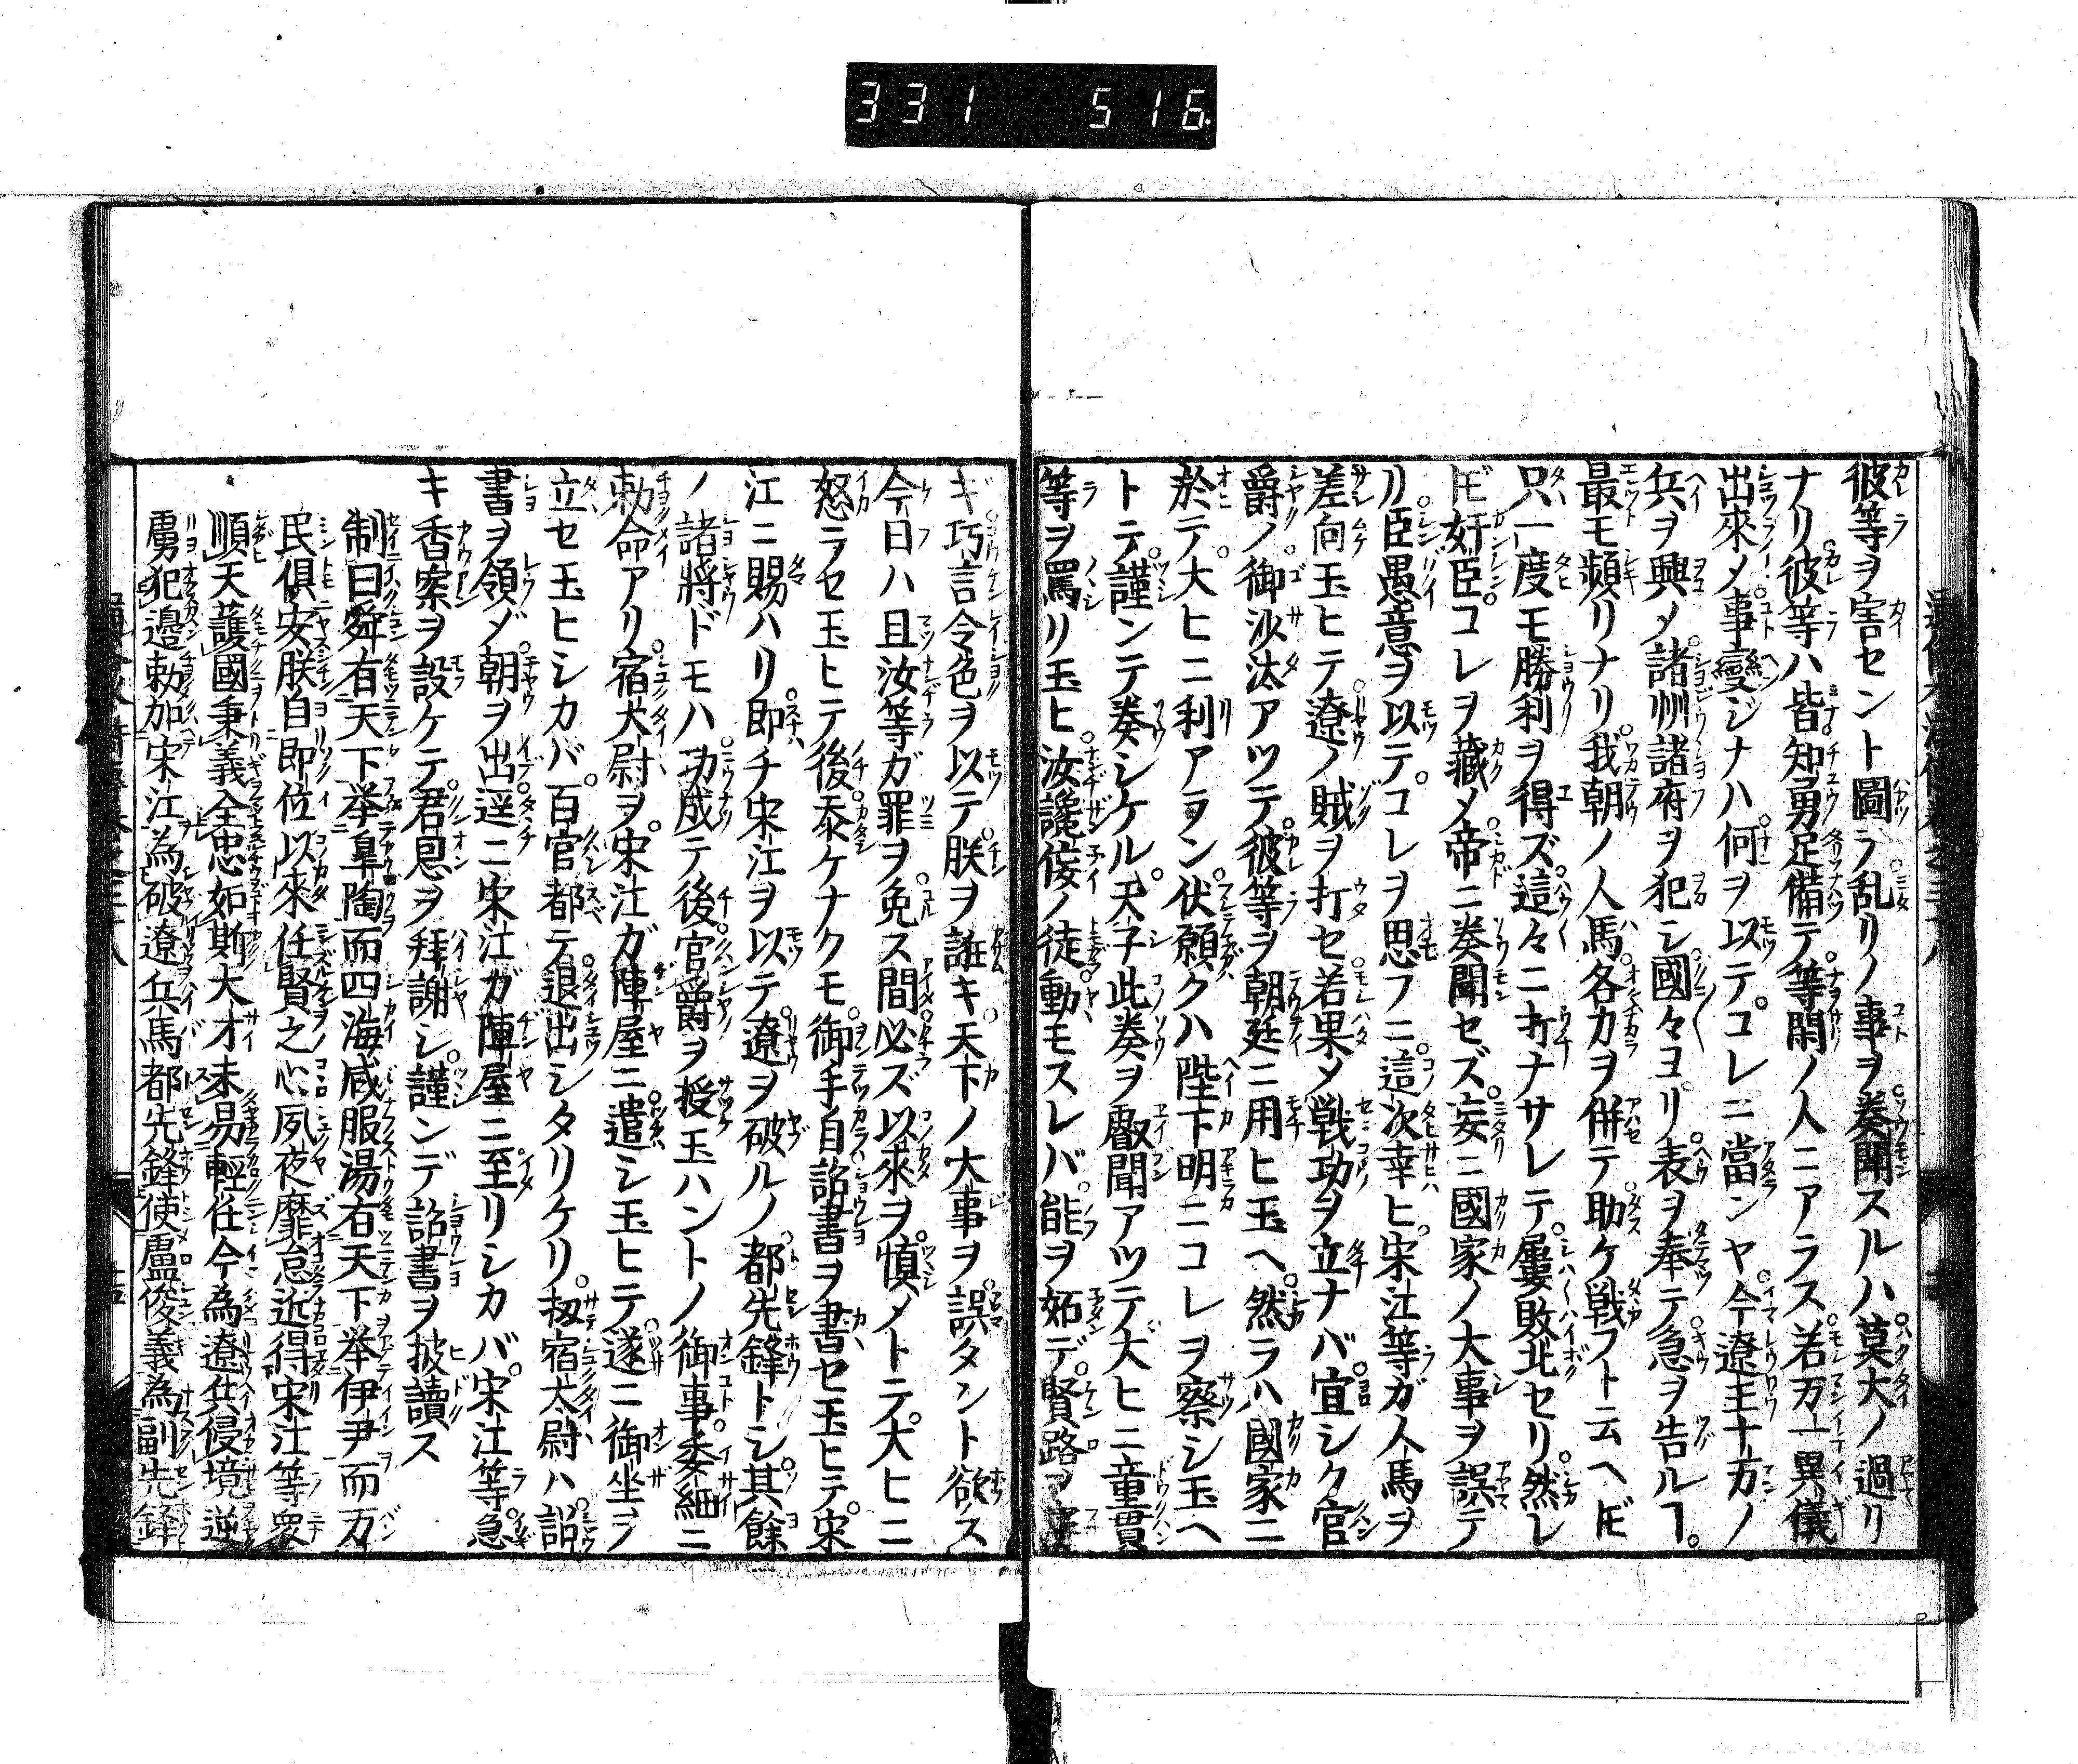 331 516
彼等ヲ害セント圖ラ乱リノ事ヲ奏聞スルハ莫大ノ過リ
ナリ彼等ハ皆知勇足備テ等閑ノ人ニアラス若万一異儀
出來メ事變ジナハ何ヲ以テコレニ當ンヤ今遼王十万ノ
兵ヲ興メ諸州諸府ヲ犯シ國々ヨリ表ヲ奉テ急ヲ告ルヿ
最モ頻リナリ我朝ノ人馬各力ヲ併テ助ケ戦フト云ヘ𪜈
只一度モ勝利ヲ得ズ這々ニ打ナサレテ屢敗北セリ然レ
𪜈奸臣コレヲ藏メ帝ニ奏聞セズ妄ニ國家ノ大事ヲ誤テ
リ臣愚意ヲ以テコレヲ思フニ這次幸ヒ宋江等ガ人馬ヲ
差向玉ヒテ遼ノ賊ヲ打セ若果メ戦功ヲ立ナバ宜シク官
爵ノ御沙汰アツテ彼等ヲ朝廷ニ用ヒ玉ヘ然ラハ國家ニ
於テ大ヒニ利アラン伏願クハ陛下明ニコレヲ察シ玉ヘ
トテ謹ンテ奏シケル天子此奏ヲ叡聞アツテ大ヒニ童貫
等ヲ罵リ玉ヒ汝讒侫ノ徒動モスレバ能ヲ妬デ賢路ヲ
ギ巧言令色ヲ以テ朕ヲ誑キ天下ノ大事ヲ誤タント欲ス
今日ハ且汝等ガ罪ヲ免ス間必ズ以來ヲ慎メトテ大ヒニ
怒ラセ玉ヒテ後忝ケナクモ御手自詔書ヲ書セ玉ヒテ宋
江ニ賜ハリ即チ宋江ヲ以テ遼ヲ破ルノ都先鋒トシ其餘
ノ諸將ドモハ功成テ後官爵ヲ授玉ハントノ御事委細ニ
勅命アリ宿太尉ヲ宋江ガ陣屋ニ遣シ玉ヒテ遂ニ御坐ヲ
立セ玉ヒシカバ百官都テ退出シタリケリ扨宿太尉ハ詔
書ヲ領メ朝ヲ出逕ニ宋江ガ陣屋ニ至リシカバ宋江等急
キ香案ヲ設ケテ君恩ヲ拜謝シ謹ンデ詔書ヲ披讀ス
制曰舜有天下挙皐陶而四海咸服湯有天下挙伊尹而万
民俱安朕自即位以來任賢之心夙夜靡怠近得宋江等衆
順天護國秉義全忠如斯大才未易輕任今為遼兵侵境逆
虜犯邊勅加宋江為破遼兵馬都先鋒使盧俊義為副先鋒